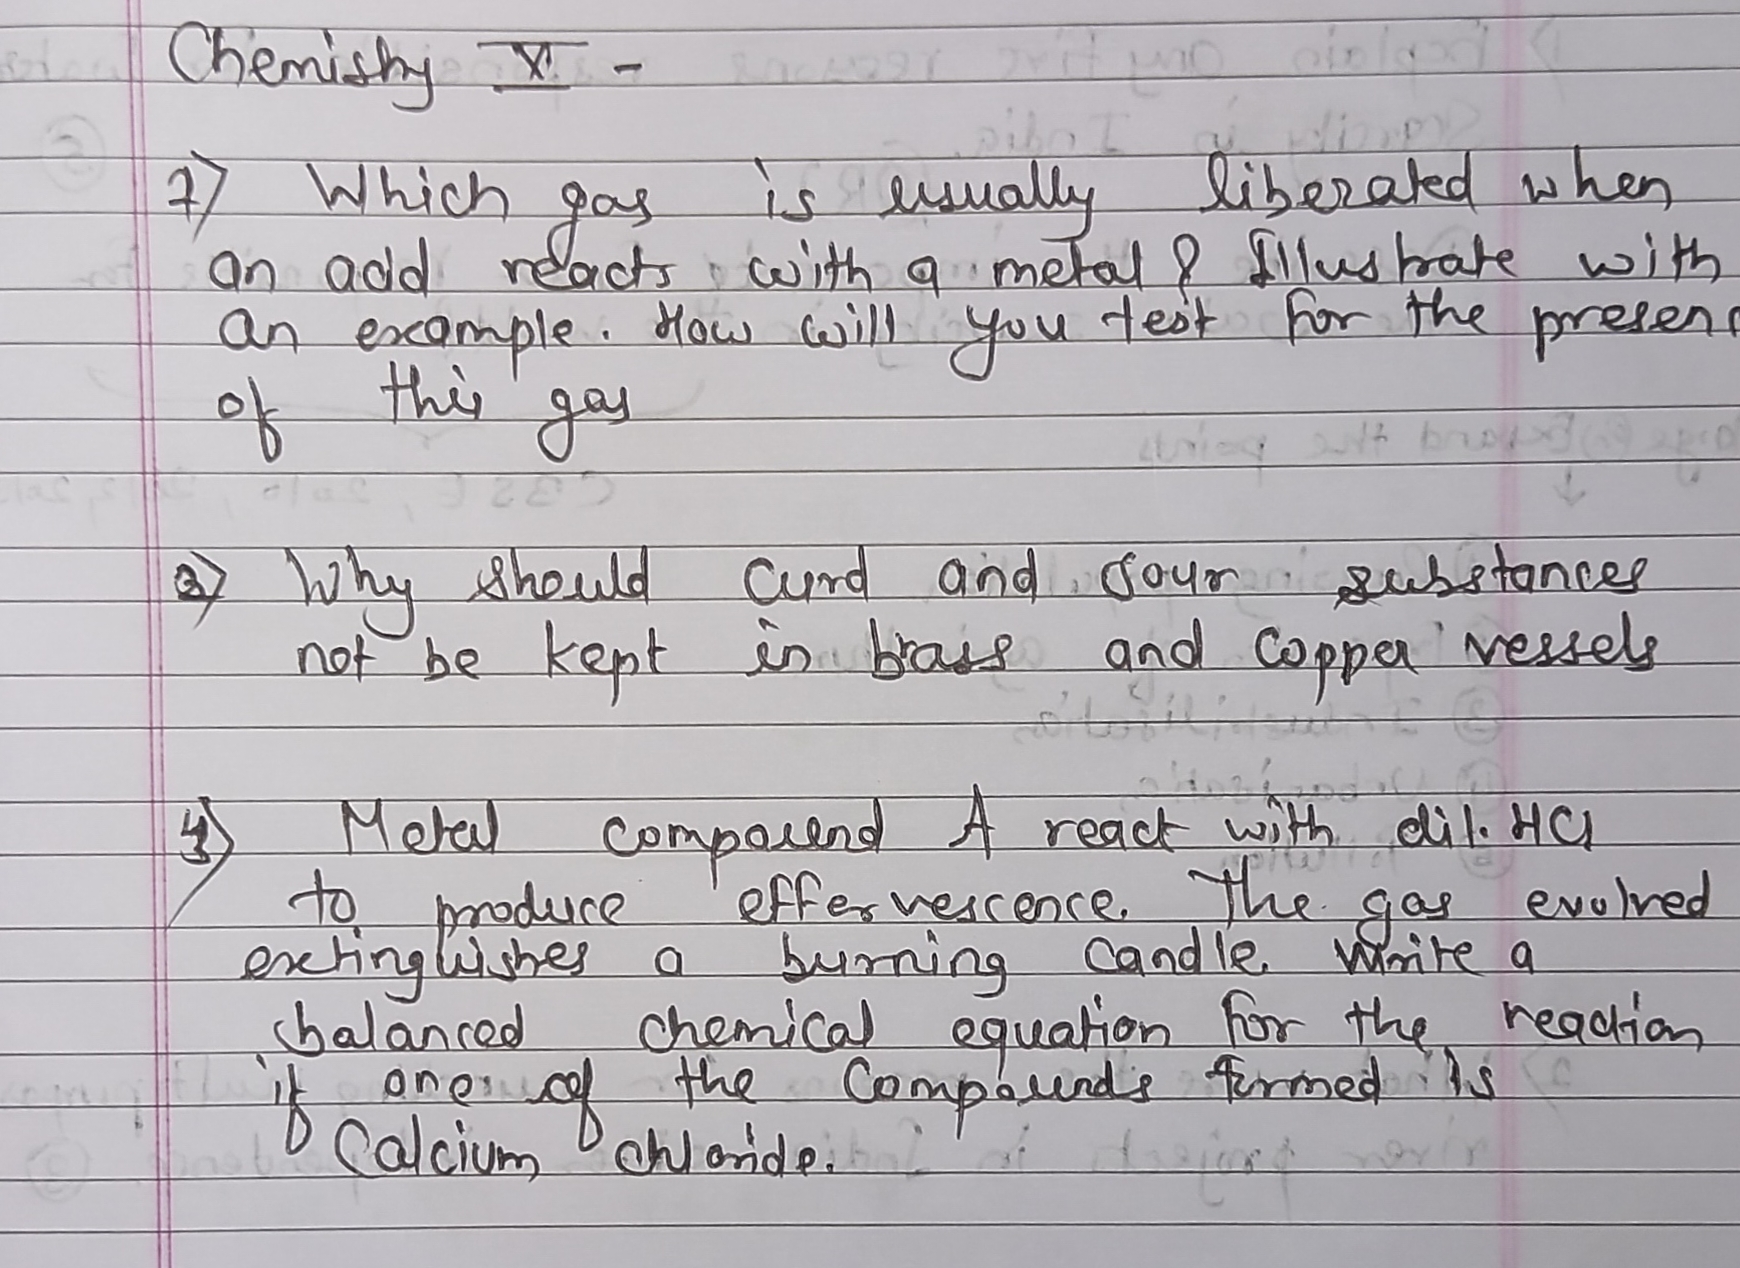 Chemistry X -
1) Which gas is usually liberated when
an acid reacts with a metal ? Illustrate with
an example. How will you test for the presenc
of this gas
2) Why should Curd and sour substances
not be kept in brass and copper vessels
3) Metal compound A react with dil. HCl
to produce effervescence. The gas evolved
extinguishes a burning candle. Write a
balanced chemical equation for the reaction
if one of the Compounds formed is
Calcium chloride.